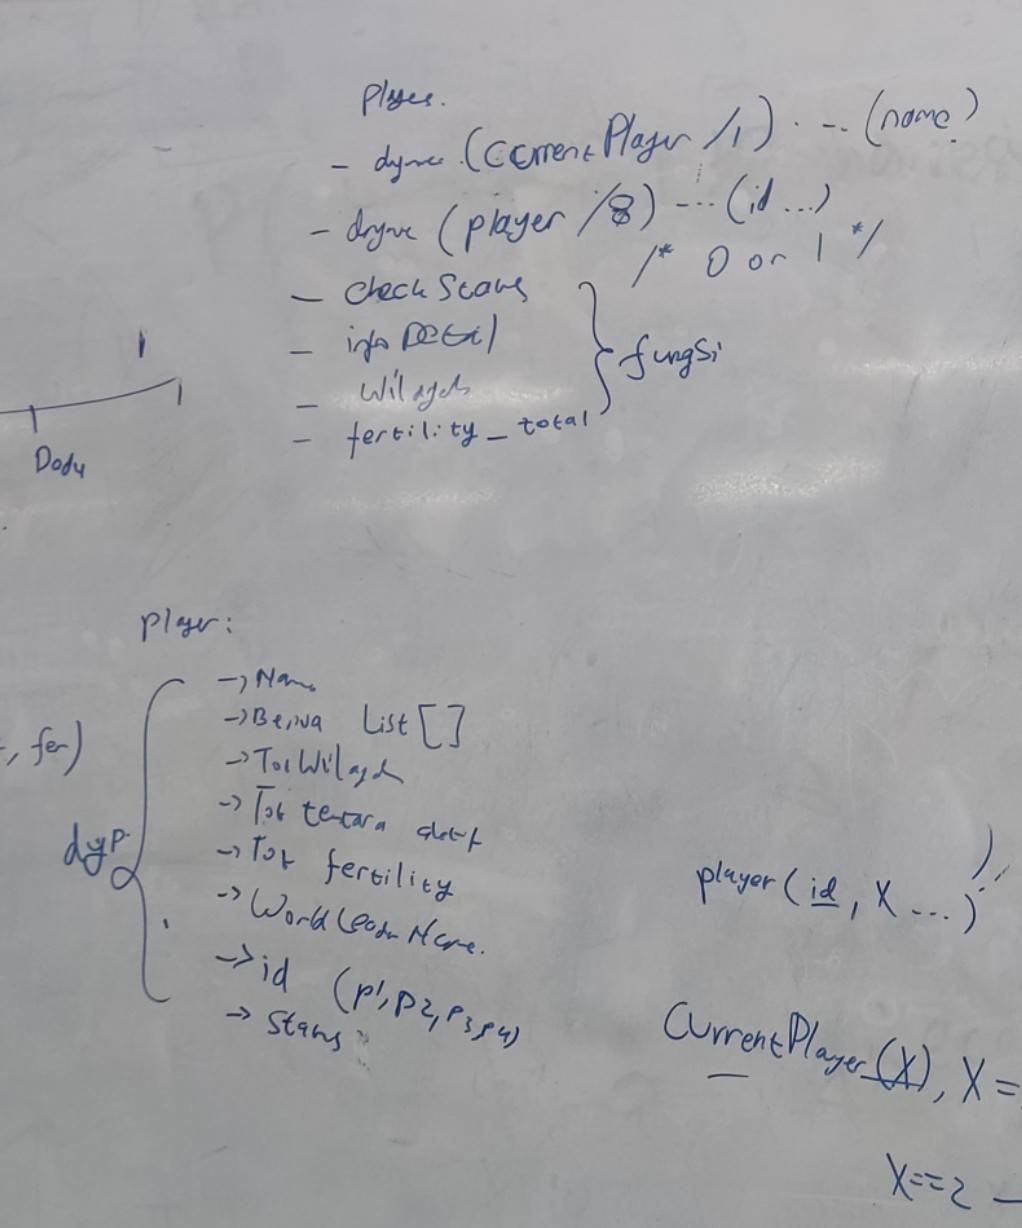 - (CurrentPlayer /1) ... (name)
- (player /8) ... (id ...)
/* 0 or 1 */
- check Status
- info Detail
- Wilayah
- fertility_total
} fungsi
Dody
player:
, fer)
→ Name
→ Benua List []
→ Tot Wilayah
→ Tot tentara aktif
→ Tot fertility
→ World Leader Name.
→ id (p1, p2, p3, p4)
→ Status
player (id, X ...)
CurrentPlayer (X), X =
X==2 —